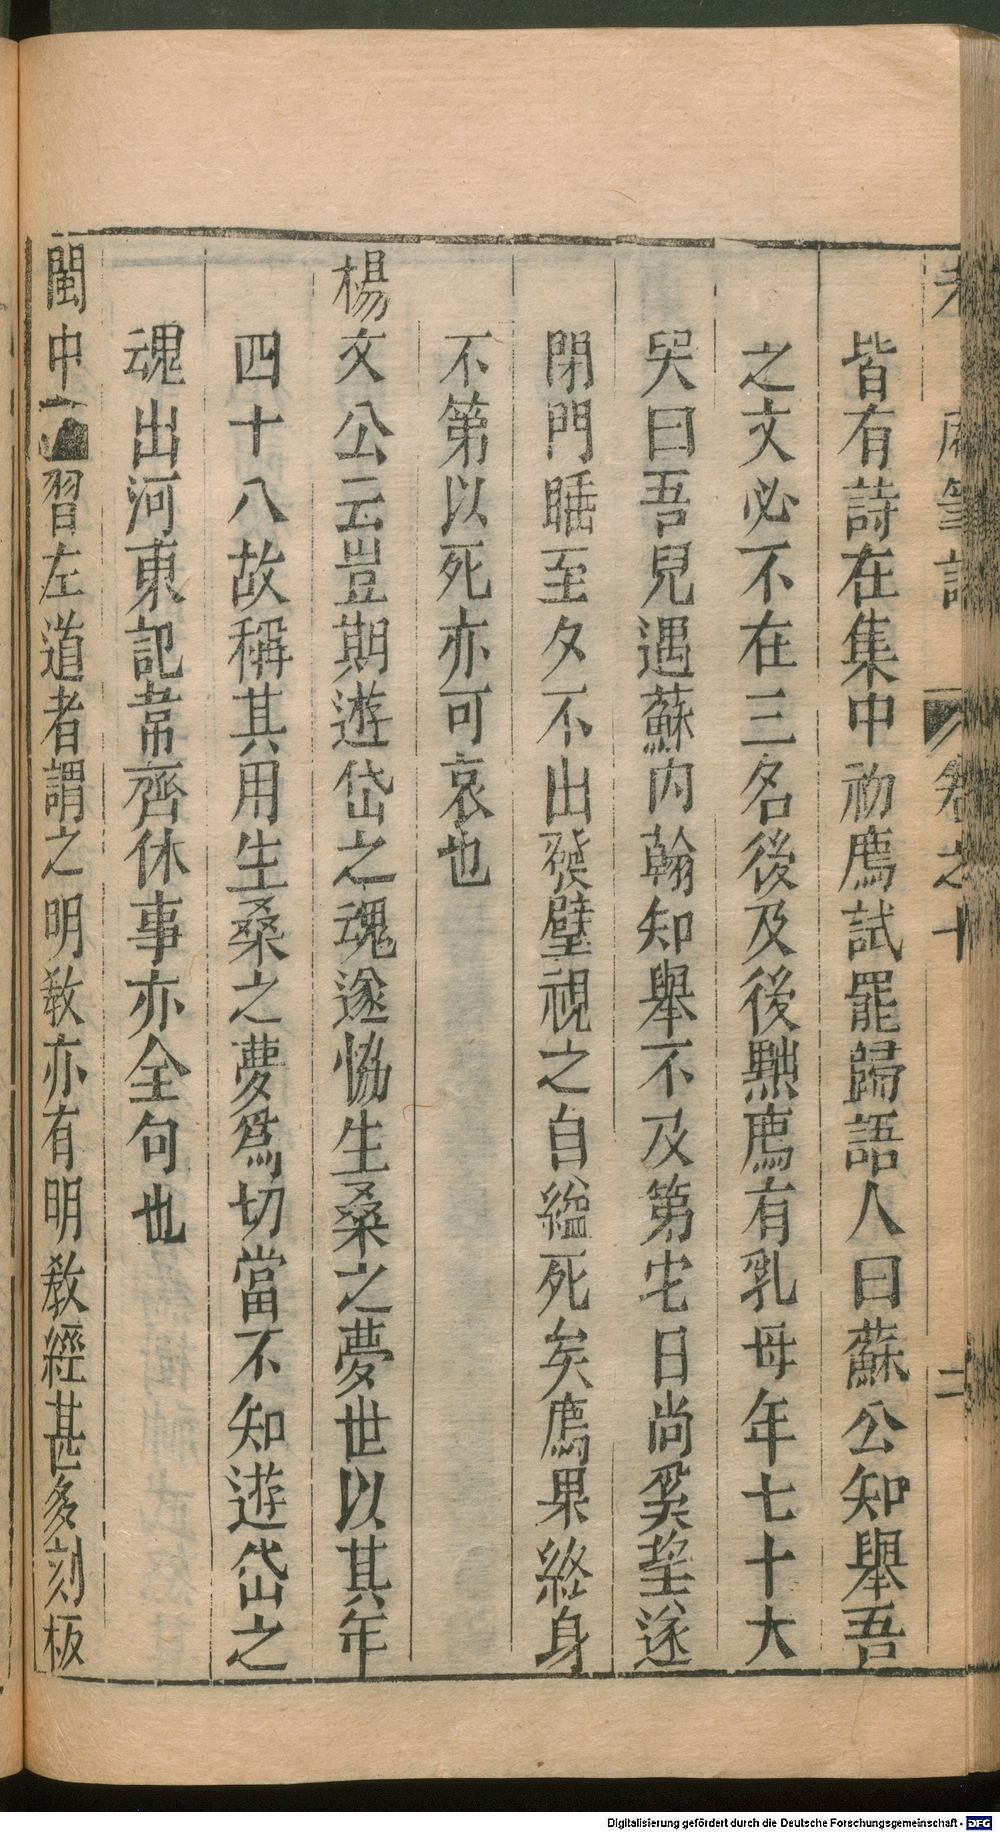 筆記 卷之十 二
皆有詩在集中初廌試罷歸語人曰蘇公知舉吾
之文必不在三名後及後黜廌有乳母年七十大
哭曰吾兒遇蘇內翰知舉不及第它日尚奚望遂
閉門睡至夕不出發壁視之自縊死矣廌果終身
不第以死亦可哀也
楊文公云豈期遊岱之魂遂恊生桑之夢世以其年
四十八故稱其用生桑之夢爲切當不知遊岱之
魂出河東記韋齊休事亦全句也
閩中習左道者謂之明教亦有明教經甚多刻板
Digitalisierung gefördert durch die Deutsche Forschungsgemeinschaft - DFG